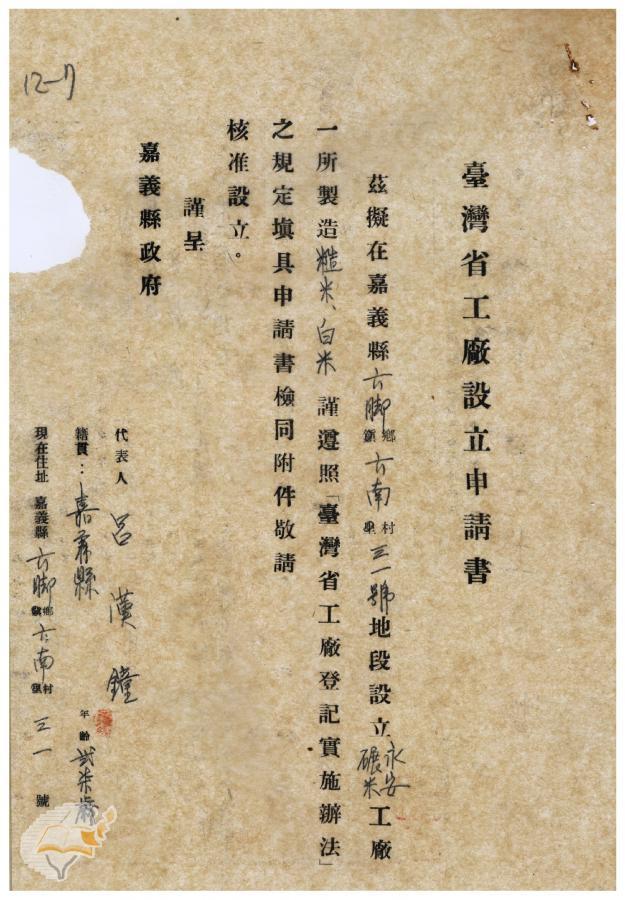 臺灣省工廠設立申請書
茲擬在嘉義縣六脚鄉鎮六南村里三一號地段設立永安碾米工廠
一所製造糙米、白米謹遵照「臺灣省工廠登記實施辦法」
之規定填具申請書檢同附件敬請
核准設立。
謹呈
嘉義縣政府
代表人 呂漢鐘
籍貫：嘉義縣 年齡 弍柒歲
現在住址 嘉義縣六脚鄉鎮六南村里三一號
12-17